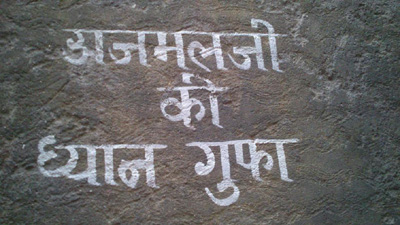 अजमलजी
की
ध्यान गुफा